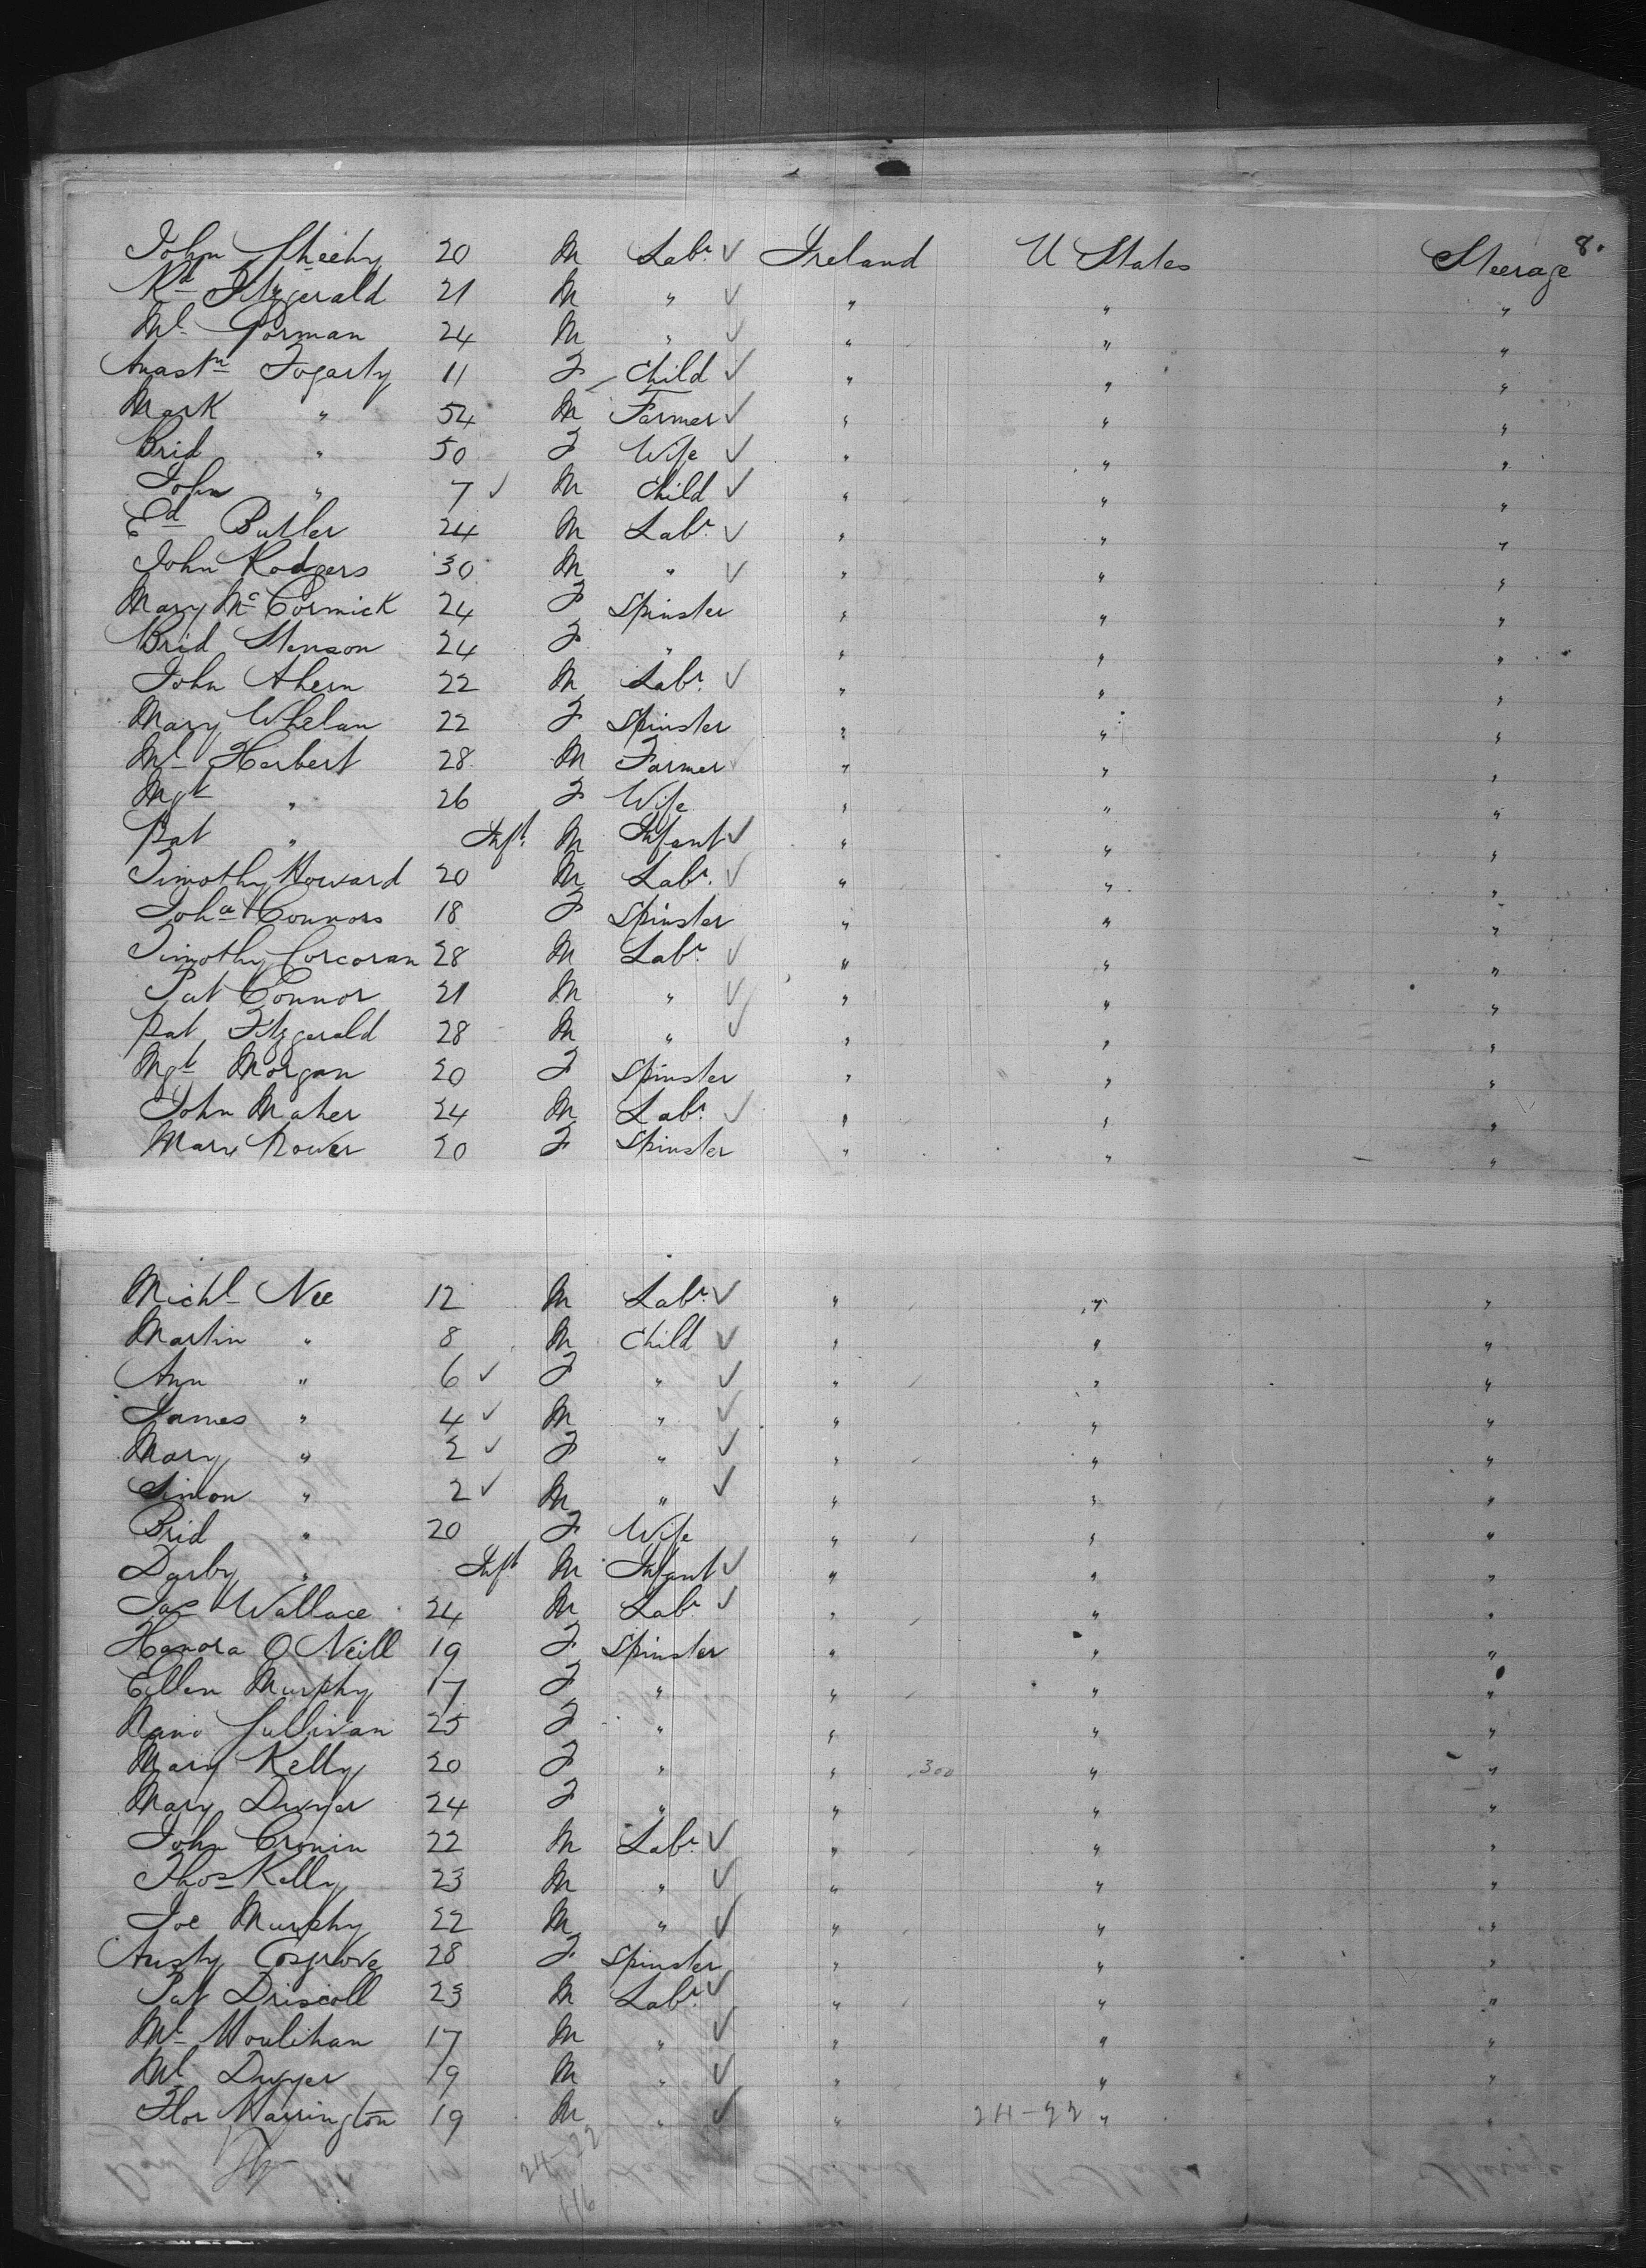 8.
John Sheehy 20 M Labr ✓ Ireland U States Steerage
Rd Fitzgerald 21 M " ✓ " " "
Ml Gorman 24 M " ✓ " " "
Anast Fogarty 11 F Child ✓ " " "
Mark " 54 M Farmer ✓ " " "
Brid " 50 F Wife ✓ " " "
John " 7 ✓ M Child ✓ " " "
Ed Butler 24 M Labr ✓ " " "
John Rodgers 30 M " ✓ " " "
Mary McCormick 24 F Spinster " " "
Brid Stenson 24 F " " " "
John Ahern 22 M Labr ✓ " " "
Mary Whelan 22 F Spinster " " "
Ml Herbert 28 M Farmer ✓ " " "
Mgt " 26 F Wife " " "
Pat " Inft M Infant ✓ " " "
Timothy Howard 20 M Labr ✓ " " "
Joha Connors 18 F Spinster " " "
Timothy Corcoran 28 M Labr ✓ " " "
Pat Connor 21 M " ✓ " " "
Pat Fitzgerald 28 M " ✓ " " "
Mgt Morgan 20 F Spinster " " "
John Maher 24 M Labr ✓ " " "
Mary Power 20 F Spinster " " "
Michl Nee 12 M Labr ✓ " " "
Martin " 8 M Child ✓ " " "
Ann " 6 ✓ F " ✓ " " "
James " 4 ✓ M " ✓ " " "
Mary " 2 ✓ F " ✓ " " "
Simon " 2 ✓ M " ✓ " " "
Brid " 20 F Wife " " "
Darby " Inft M Infant ✓ " " "
Jas Wallace 24 M Labr ✓ " " "
Hanora O Neill 19 F Spinster " " "
Ellen Murphy 17 F " " " "
Nano Sullivan 25 F " " " "
Mary Kelly 20 F " " 300 " "
Mary Dwyer 24 F " " " "
John Cronin 22 M Labr ✓ " " "
Thos Kelly 23 M " ✓ " " "
Joe Murphy 22 M " ✓ " " "
Ansty Cosgrove 28 F Spinster " " "
Pat Driscoll 23 M Labr ✓ " " "
Ml Houlihan 17 M " ✓ " " "
Ml Dwyer 19 M " ✓ " " "
Flor Harrington 19 M " ✓ " 24-22 " "
24-22
46